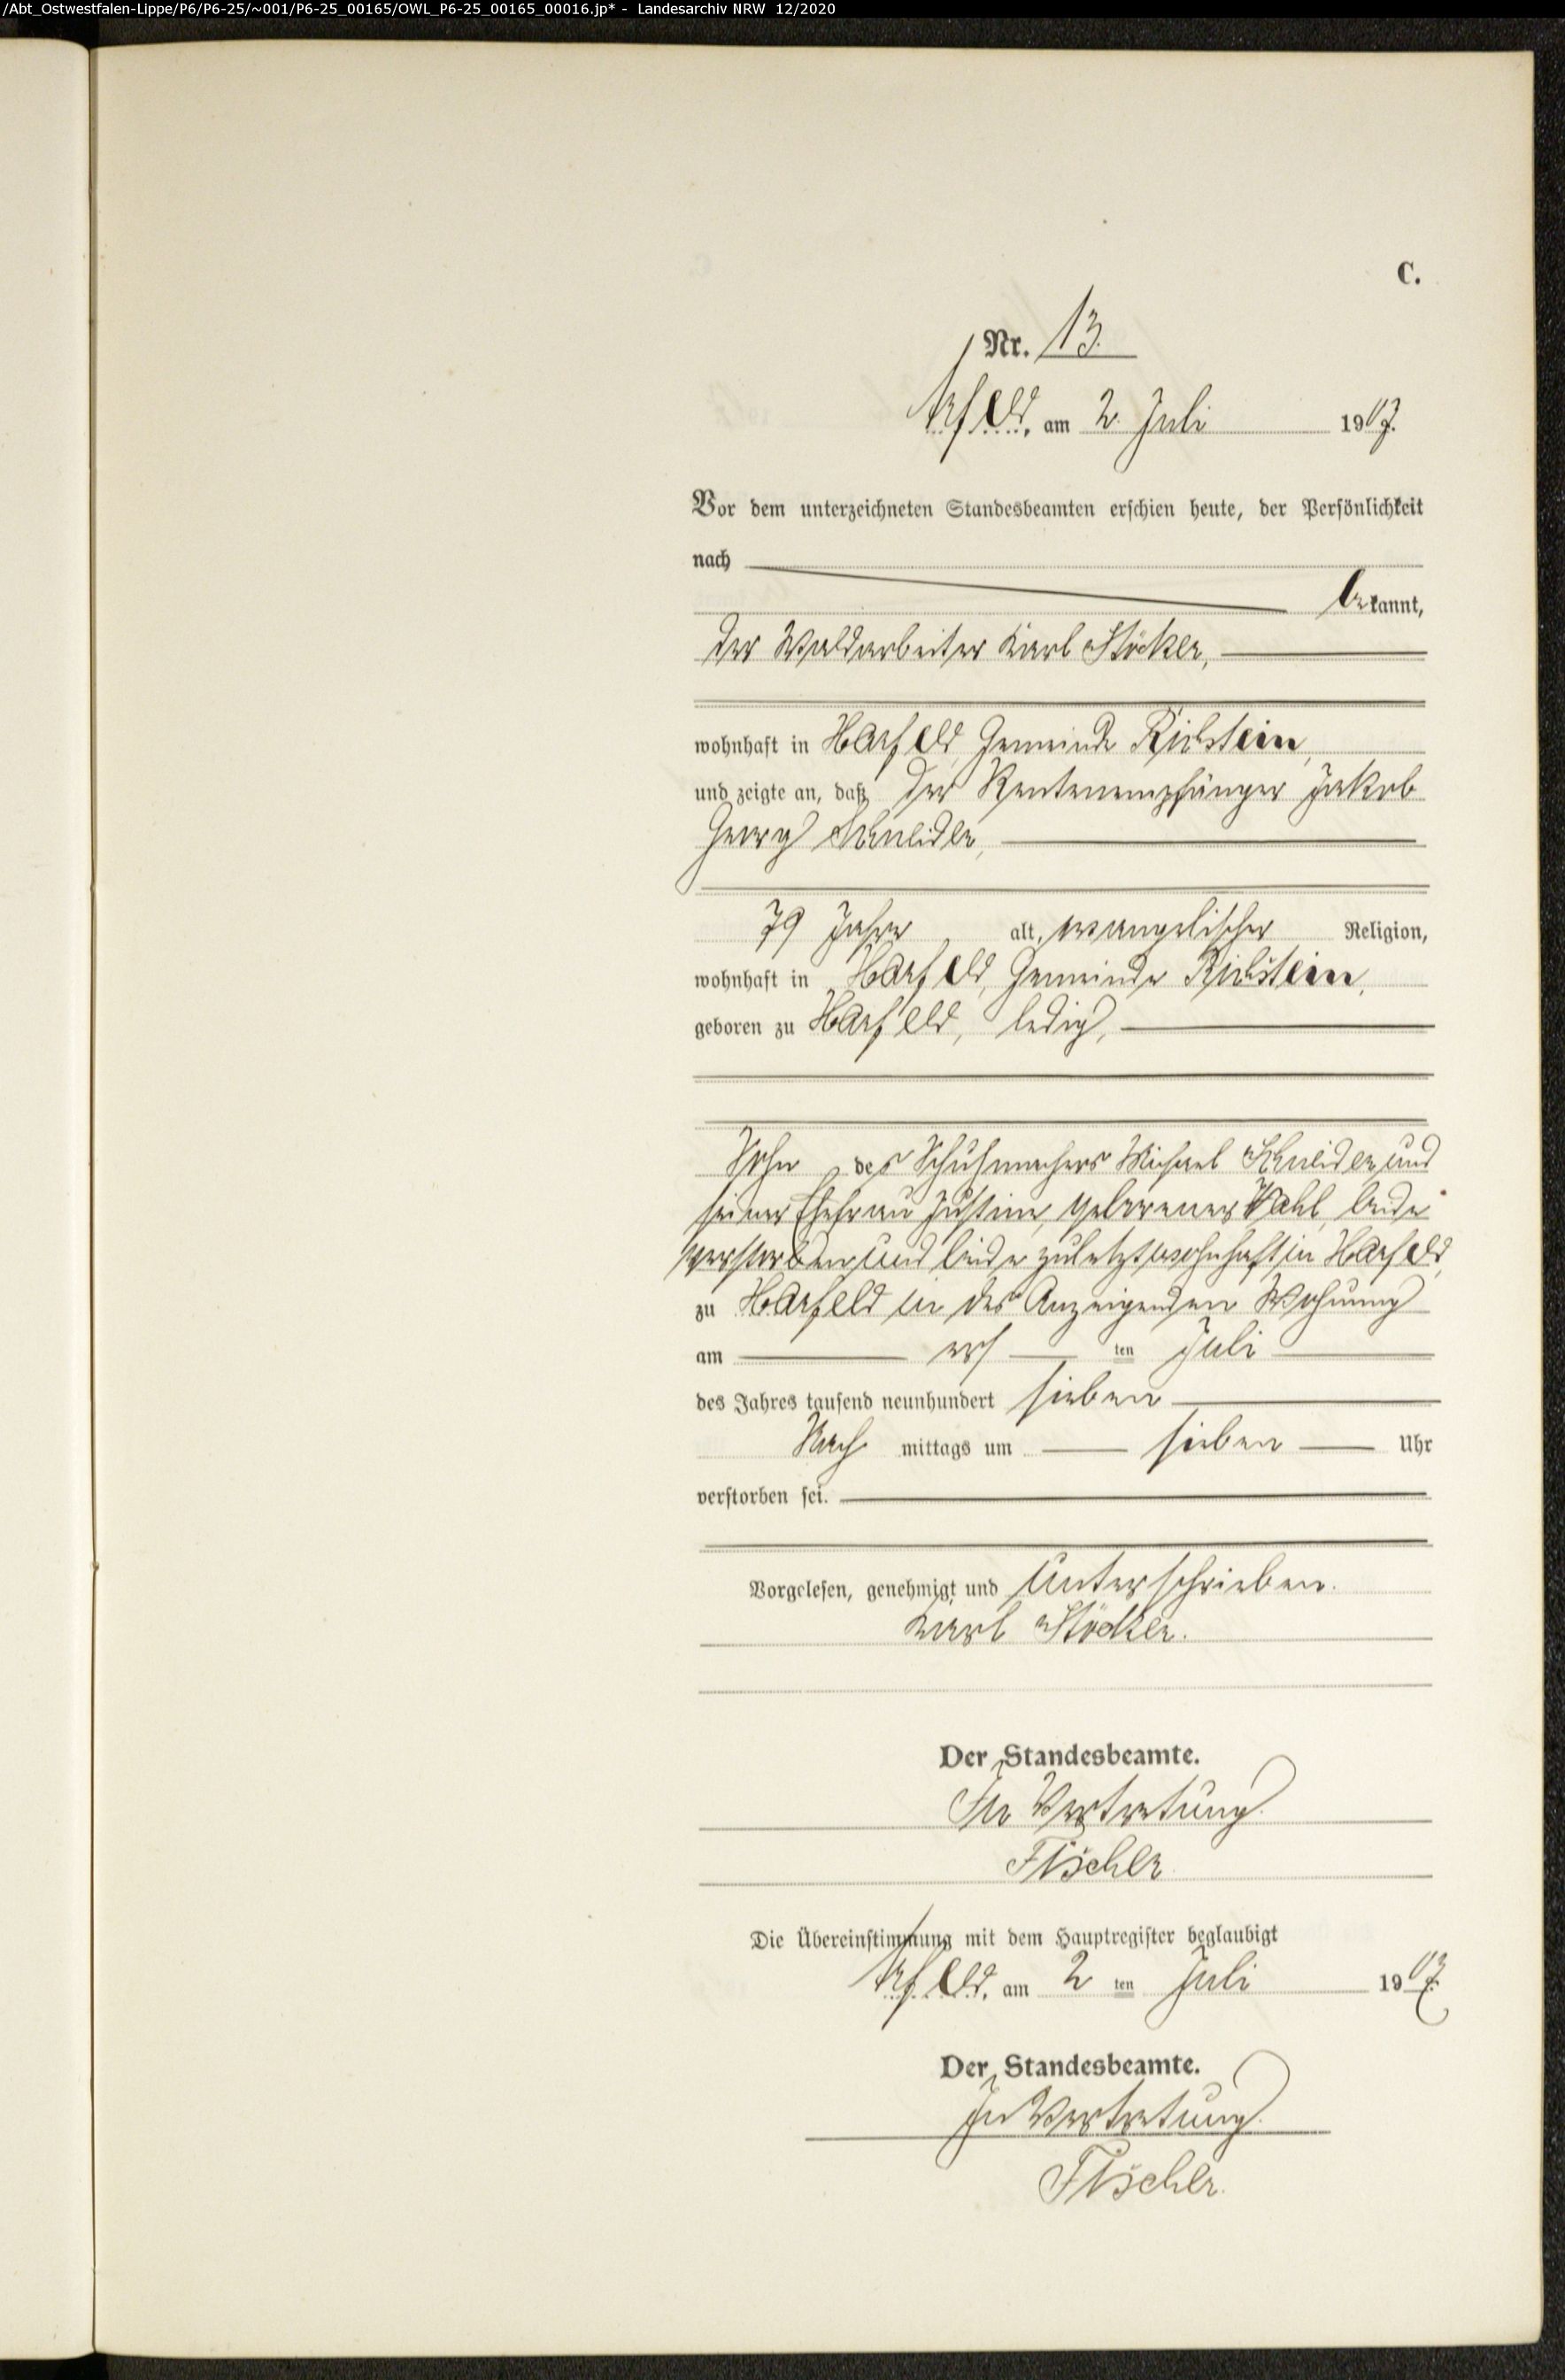 /Abt_Ostwestfalen-Lippe/P6/P6-25/~001/P6-25_00165/OWL_P6-25_00165_00016.jp* - Landesarchiv NRW 12/2020
C.
Nr. 13.
Arfeld, am 2. Juli 1907.
Vor dem unterzeichneten Standesbeamten erschien heute, der Persönlichkeit
nach
bekannt,
der Waldarbeiter Karl Stöcker,
wohnhaft in Harfeld, Gemeinde Richstein,
und zeigte an, daß der Rentenempfänger Jakob
Georg Schneider,
79 Jahre alt, evangelischer Religion,
wohnhaft in Harfeld, Gemeinde Richstein,
geboren zu Harfeld, ledig,
Sohn des Schuhmachers Michael Schneider und
seiner Ehefrau Justine, geborener Wahl, beide
verstorben und beide zuletzt wohnhaft in Harfeld,
zu Harfeld in des Anzeigenden Wohnung
am ersten Juli
des Jahres tausend neunhundert sieben
Nachmittags um sieben Uhr
verstorben sei.
Vorgelesen, genehmigt und unterschrieben.
Karl Stöcker.
Der Standesbeamte.
In Vertretung.
Fischer
Die Übereinstimmung mit dem Hauptregister beglaubigt
Arfeld, am 2 ten Juli 1907.
Der Standesbeamte.
In Vertretung.
Fischer.